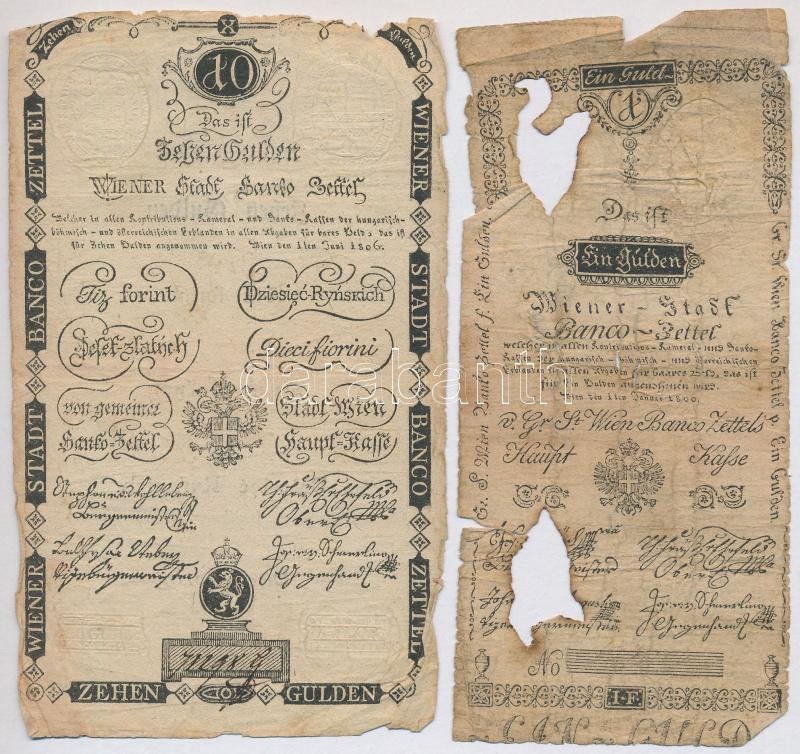 Zehen X Gulden
10
Das ist
Zehen Gulden
WIENER Stadt Banko Zettel
Welcher in allen Kontributions - Kameral - und Banko - Kassen der hungarisch-
böhmisch - und österreichischen Erblanden in allen Abgaben für bares Geld, das ist
für Zehen Gulden angenommen wird. Wien den 1ten Juni 1806.
Tiz forint
Dziesięć Ryńskich
Deset zlatych
Dieci fiorini
von gemeiner
Stadt Wien
Banko-Zettel
Haupt-Kasse
WIENER STADT BANCO ZETTEL
WIENER STADT BANCO ZETTEL
ZEHEN 10 GULDEN
Ein Guld
1
Das ist
Ein Gulden
Wiener - Stadt
Banco - Zettel
welcher in allen Kontributions - Kameral - und Banko-
Kassen der hungarisch - böhmisch - und österreichischen
Erblanden in allen Abgaben für baares Geld, das ist
für Ein Gulden angenohmen wird.
Wien den 1ten Januar 1800.
v. Gr St Wien Banco Zettels
Haupt Kasse
Gr. S. Wien Banko Zettel f. Ein Gulden
Gr St Wien Banco Zettel p. Ein Gulden
No
I-F.
EIN GULD
darabanth